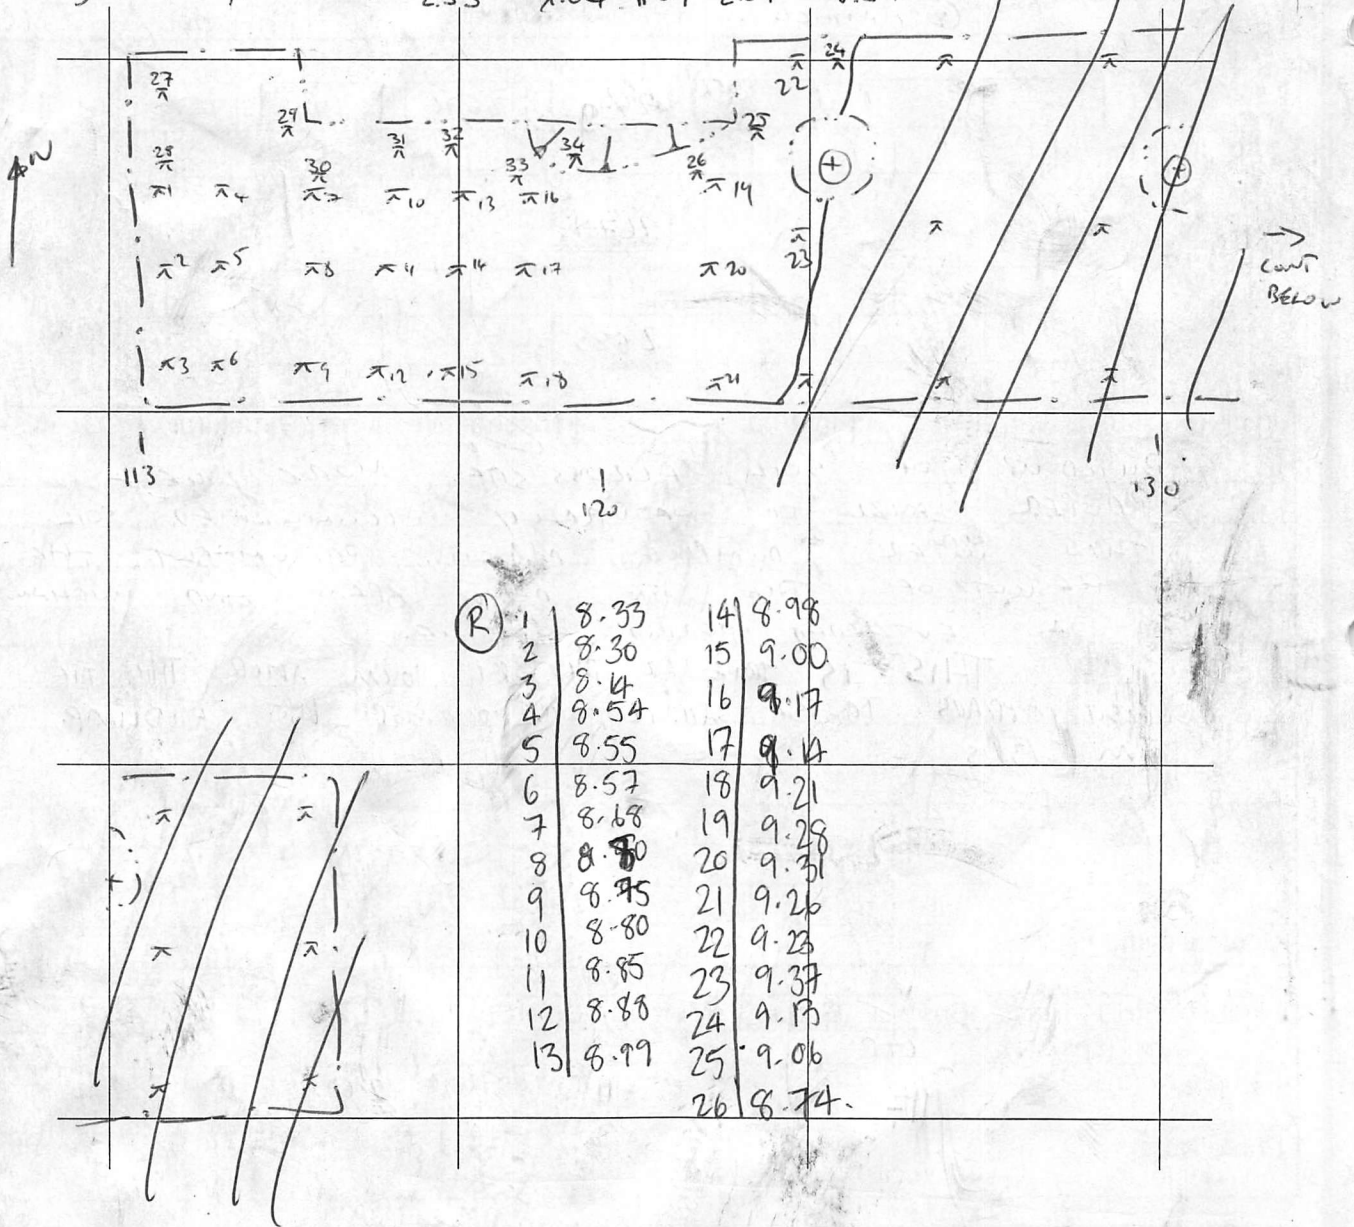 22 24
27
29
25
31 32
34
28
33
26
30
1 4 7 10 13 16 19
N
23
2 5 8 11 14 17 20
→
CONT
BELOW
3 6 9 12 15 18 21
113
120
130
R
1 8.33 14 8.98
2 8.30 15 9.00
3 8.14 16 9.17
4 8.54 17 9.14
5 8.55 18 9.21
6 8.57 19 9.28
7 8.68 20 9.31
8 8.80 21 9.26
9 8.75 22 9.23
10 8.80 23 9.37
11 8.85 24 9.13
12 8.88 25 9.06
13 8.99 26 8.74